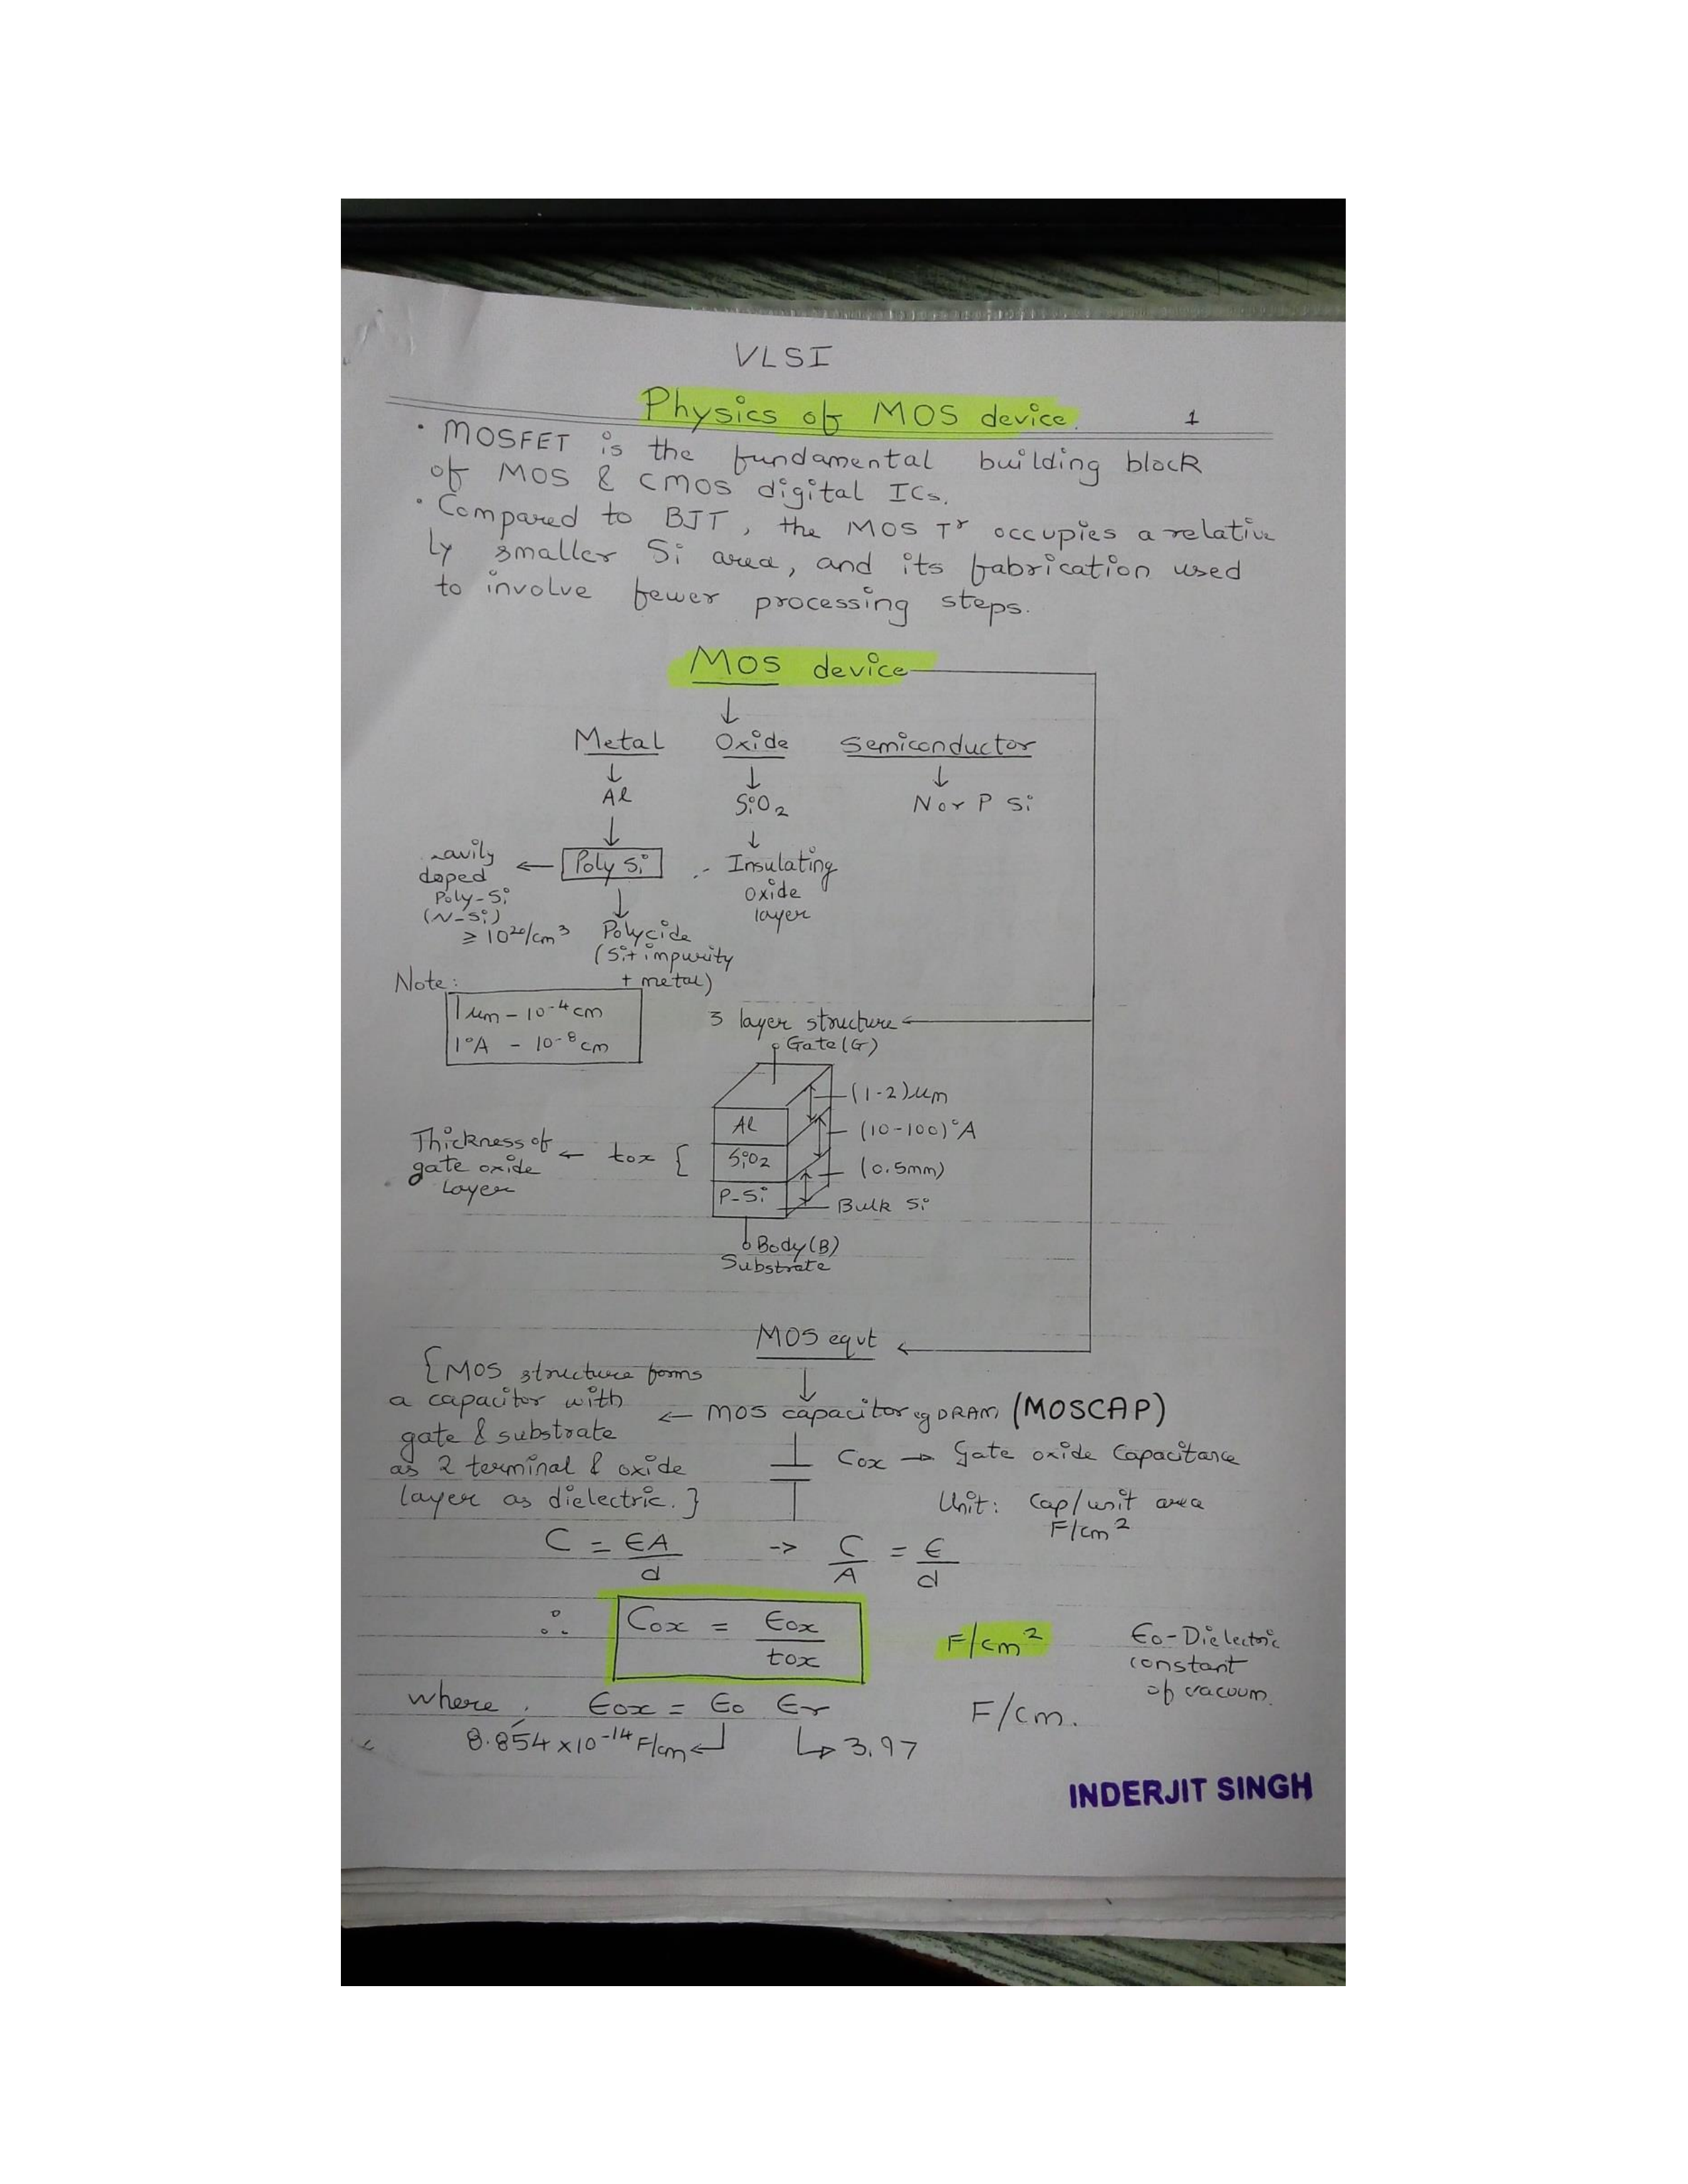 VLSI
Physics of MOS device.
1
• MOSFET is the fundamental building block
of MOS & CMOS digital ICs.
• Compared to BJT, the MOS Tʳ occupies a relative
ly smaller Si area, and its fabrication used
to involve fewer processing steps.
MOS device
↓
Metal Oxide Semiconductor
↓ ↓ ↓
Al SiO₂ N or P Si
↓ ↓
doped ← Poly Si Insulating
Poly-Si oxide
(N-Si) layer
≥ 10²⁰/cm³ Polycide
(Si + impurity
+ metal)
Note:
1 µm - 10⁻⁴ cm
1°A - 10⁻⁸ cm
3 layer structure ←
Gate (G)
Al (1-2) µm
SiO₂ (10-100)°A
P-Si (0.5mm)
Bulk Si
Thickness of ← tox {
gate oxide
layer
Body (B)
Substrate
MOS eqvt ←
↓
{MOS structure forms
a capacitor with
gate & substrate
as 2 terminal & oxide
layer as dielectric.}
← MOS capacitor eg DRAM (MOSCAP)
Cox → Gate oxide Capacitance
Unit: Cap/unit area
F/cm²
C = ϵA/d -> C/A = ϵ/d
∴ Cox = ϵox/tox F/cm²
ϵo - Dielectric
constant
of vacuum.
where, ϵox = ϵo ϵr F/cm.
8.854 x 10⁻¹⁴ F/cm ↵ ↳ 3.97
INDERJIT SINGH